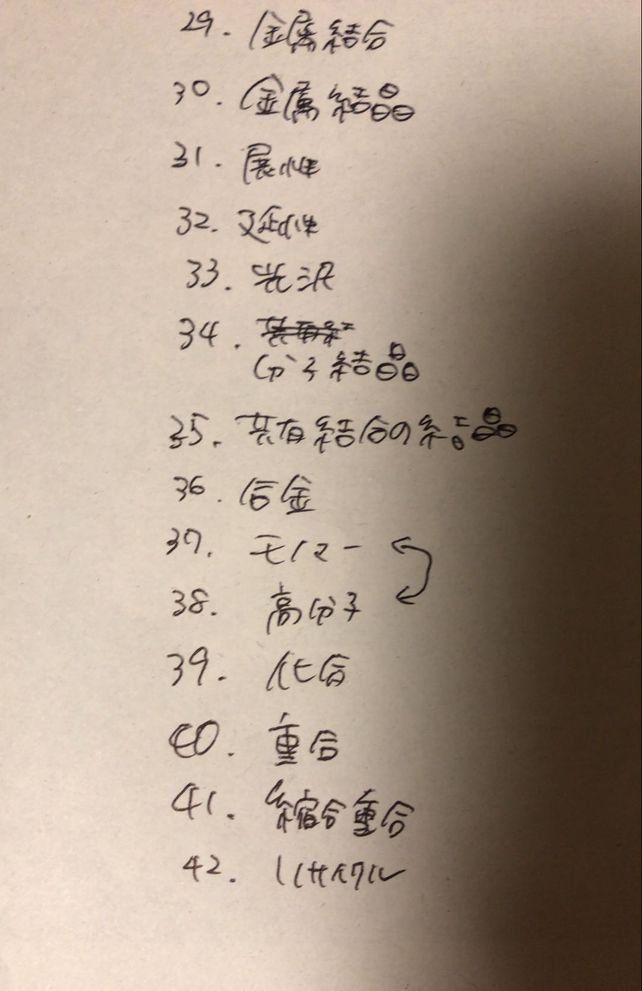 29. 金属結合
30. 金属結晶
31. 展性
32. 延性
33. 光沢
34. 共有結
分子結晶
35. 共有結合の結晶
36. 合金
37. モノマー
38. 高分子
39. 化合
40. 重合
41. 縮合重合
42. リサイクル